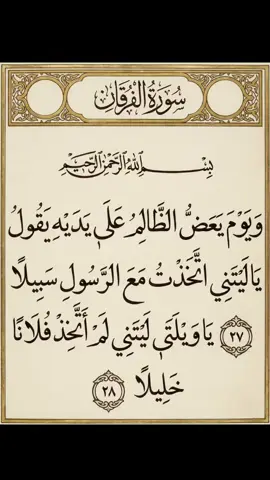 سُورَةُ الْفُرْقَانِ
بِسْمِ اللَّهِ الرَّحْمَٰنِ الرَّحِيمِ
وَيَوْمَ يَعَضُّ الظَّالِمُ عَلَىٰ يَدَيْهِ يَقُولُ
يَالَيْتَنِي اتَّخَذْتُ مَعَ الرَّسُولِ سَبِيلًا
٢٧ يَاوَيْلَتَىٰ لَيْتَنِي لَمْ أَتَّخِذْ فُلَانًا
خَلِيلًا ٢٨